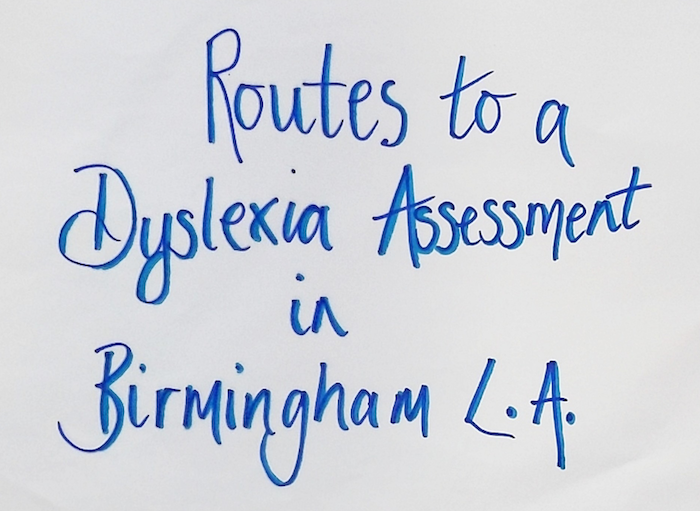 Routes to a
Dyslexia Assessment
in
Birmingham L.A.